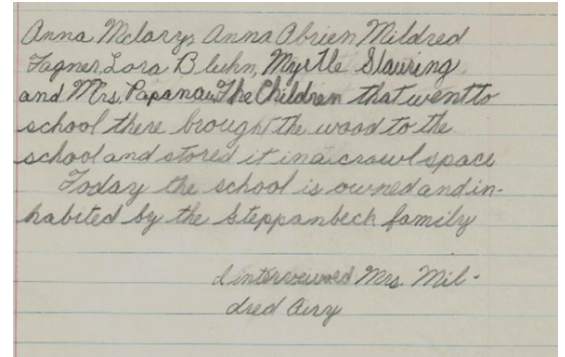 Anna Mclarys Anna Obrien Mildred
Fagner, Lora Bluhn, Myrtle Slauring
and Mrs. Papanau. The Children that went to
school there brought the wood to the
school and stored it in a crawl space
Today the school is owned and in-
habited by the Steppanbeck family
I interveiwed Mrs. Mil-
dred Airy